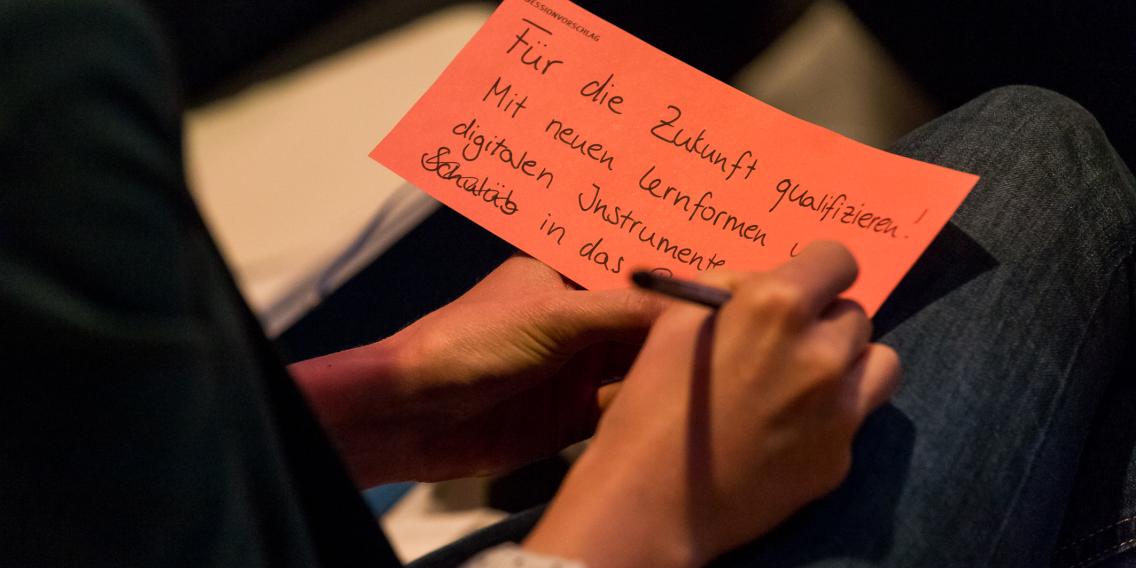 SESSIONVORSCHLAG
Für die Zukunft qualifizieren!
Mit neuen Lernformen
digitalen Instrumente
in das